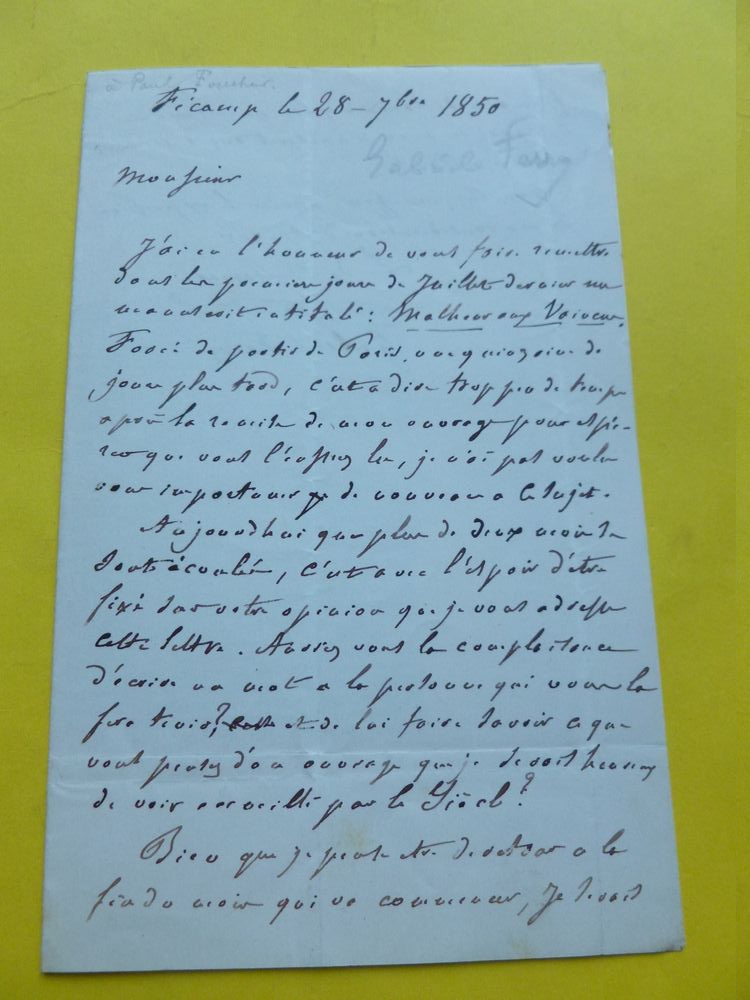 à Paul Foucher.
Fécamp le 28 - 7bre 1850
Gabriel Ferry
Monsieur
J'ai eu l'honneur de vous faire remettre
dans les premiers jours de Juillet dernier un
manuscrit intitulé : Malheur aux Vaincus.
Forcé de partir de Paris, une quinzaine de
jours plus tard, c'est a dire trop peu de temps
après la remise de mon ouvrage pour espé-
rer que vous l'eussiez lu, je n'ai pas voulu
vous importuner de nouveau a ce sujet.
Aujourdhui que plus de deux mois se
sont écoulés, c'est avec l'espoir d'être
fixé sur votre opinion que je vous adresse
cette lettre. Auriez vous la complaisance
d'écrire un mot a la personne qui vous la
fera tenir, et de lui faire savoir ce que
vous pensez d'un ouvrage que je serais heureux
de voir accueilli par le Siècle ?
Bien que je pense etre de retour a la
fin du mois qui va commencer, je serais